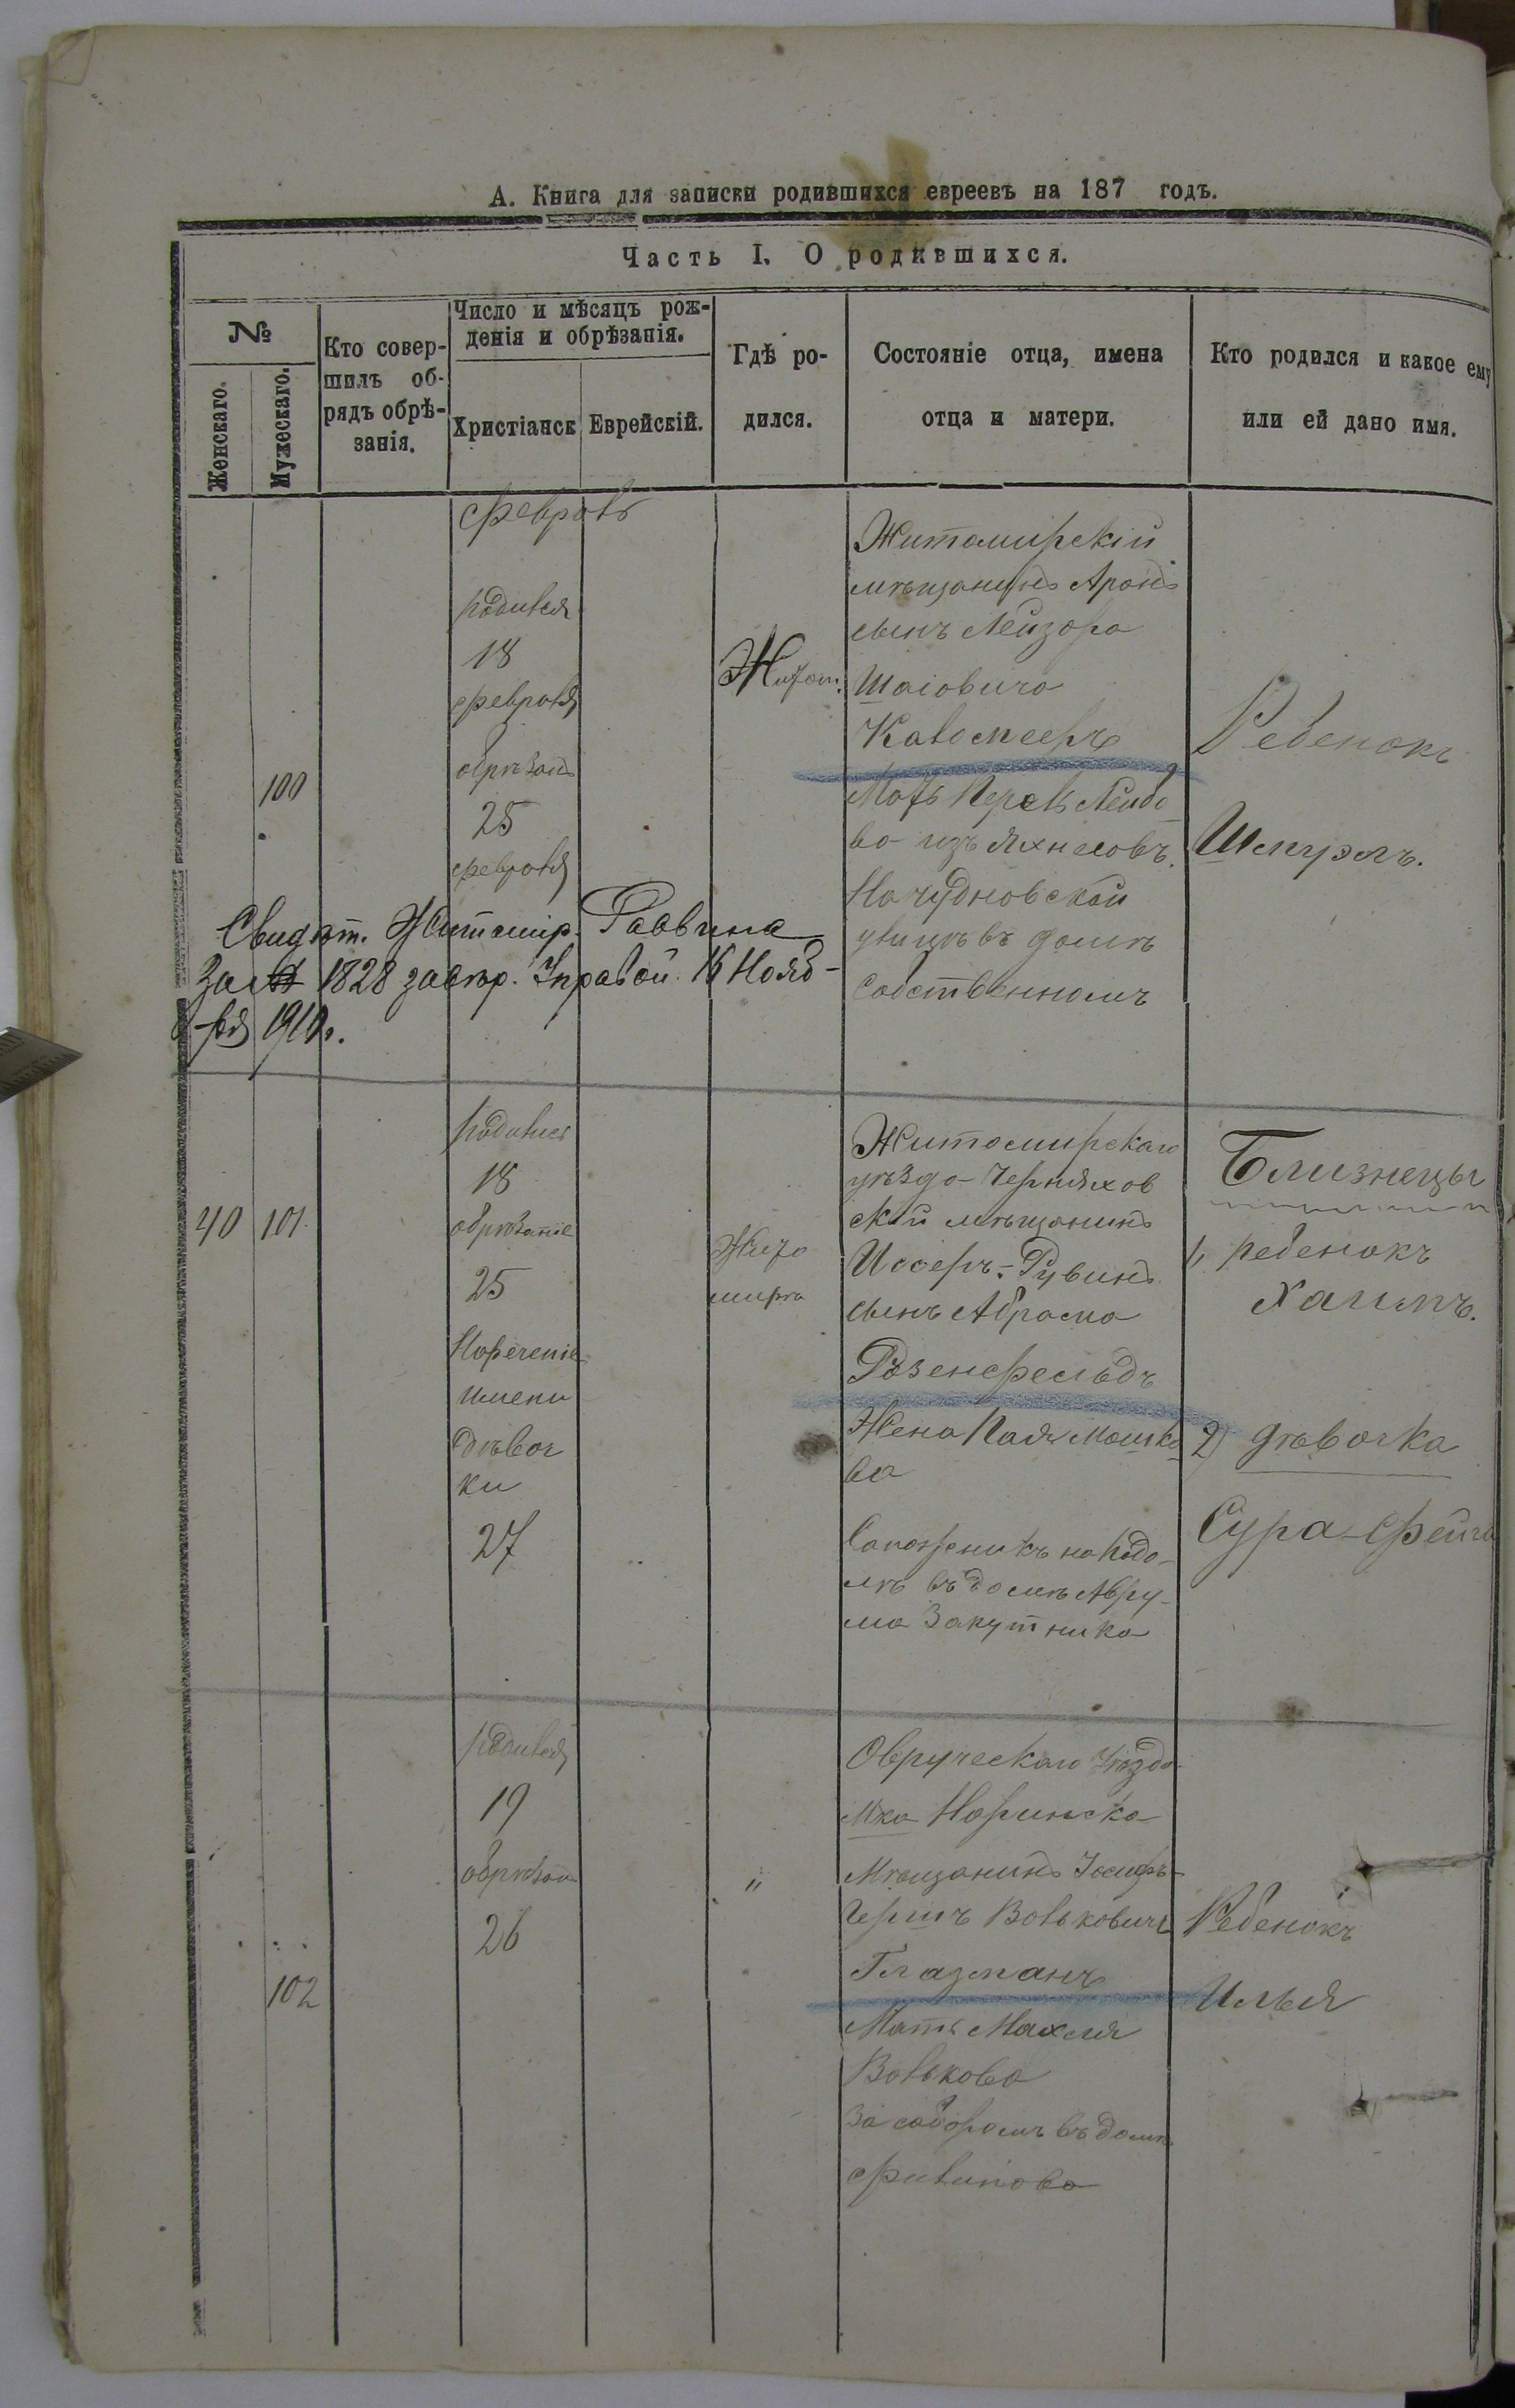 А. Книга для записки родившихся евреевъ на 187 годъ.
Часть I. О родившихся.
№
Женскаго.
Мужескаго.
Кто совер-
шилъ об-
рядъ обрѣ-
занія.
Число и мѣсяцъ рож-
денія и обрѣзанія.
Христіанск
Еврейскій.
Гдѣ ро-
дился.
Состояніе отца, имена
отца и матери.
Кто родился и какое ему
или ей дано имя.
100
февраль
родился
18
февраля
обрѣзанъ
25
февраля
Житом.
Житомирскій
мѣщанинъ Аронъ
сынъ Лейзора
Шаіовича
Мать Перель Лейбо
ва изъ
На Чудновской
улицѣ въ домѣ
собственномъ
Ребенокъ
Шмуэль.
Свидѣт. Житомір. Раввина
за № 1828 завѣр. Управой 16 Нояб-
ря 1910г.
40
101
родились
18
обрѣзаніе
25
Нареченіе
имени
дѣвоч
ки
27
Жито
миръ
Житомирскаго
уѣзда Чернихов
скій мѣщанинъ
Иосеръ-Рувинъ
сынъ Абрама
Розенфельдъ
Жена Пая Мошко
ва
Сапожникъ на Подо-
лѣ въ домѣ Авру-
ма Закутника
Близнецы
1, ребенокъ
Хаимъ.
2) дѣвочка
Сура-Фейга
102
родился
19
обрѣзанъ
26
"
Овручскаго Уѣзда
Мка Норинска
Мѣщанинъ Іосифъ-
Гершъ Вольковичъ
Глазманъ
Мать Махля
Волькова
За соборомъ въ домѣ
Филипова
Ребенокъ
Илья